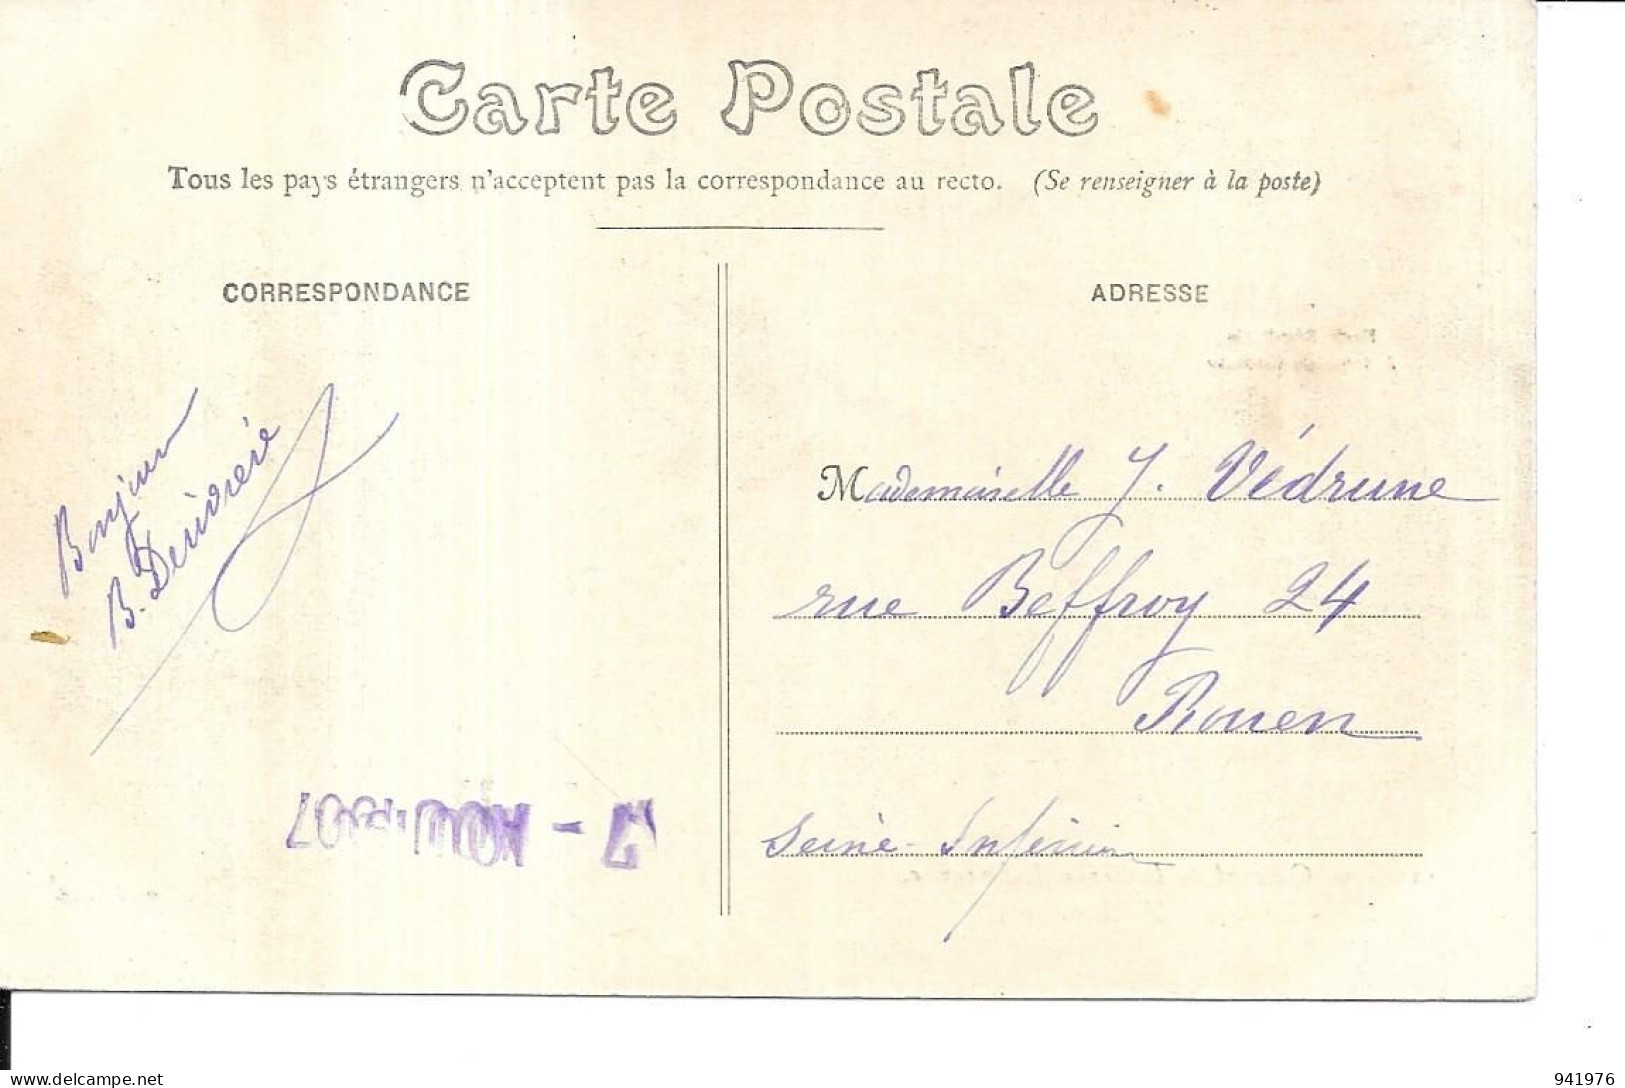 Carte Postale
Tous les pays étrangers n'acceptent pas la correspondance au recto. (Se renseigner à la poste)
CORRESPONDANCE
ADRESSE
Bonjour
B.
Mademoiselle J. Védrune
rue Beffroy 24
Rouen
Seine-Inférieure
AOUT 1907
delcampe.net
941976